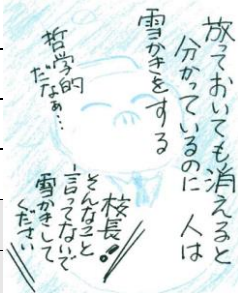 放っておいても消えると
分かっているのに 人は
雪かきをする
哲学的
だなぁ…
校長!!
そんなこと
言ってないで
雪かきして
ください